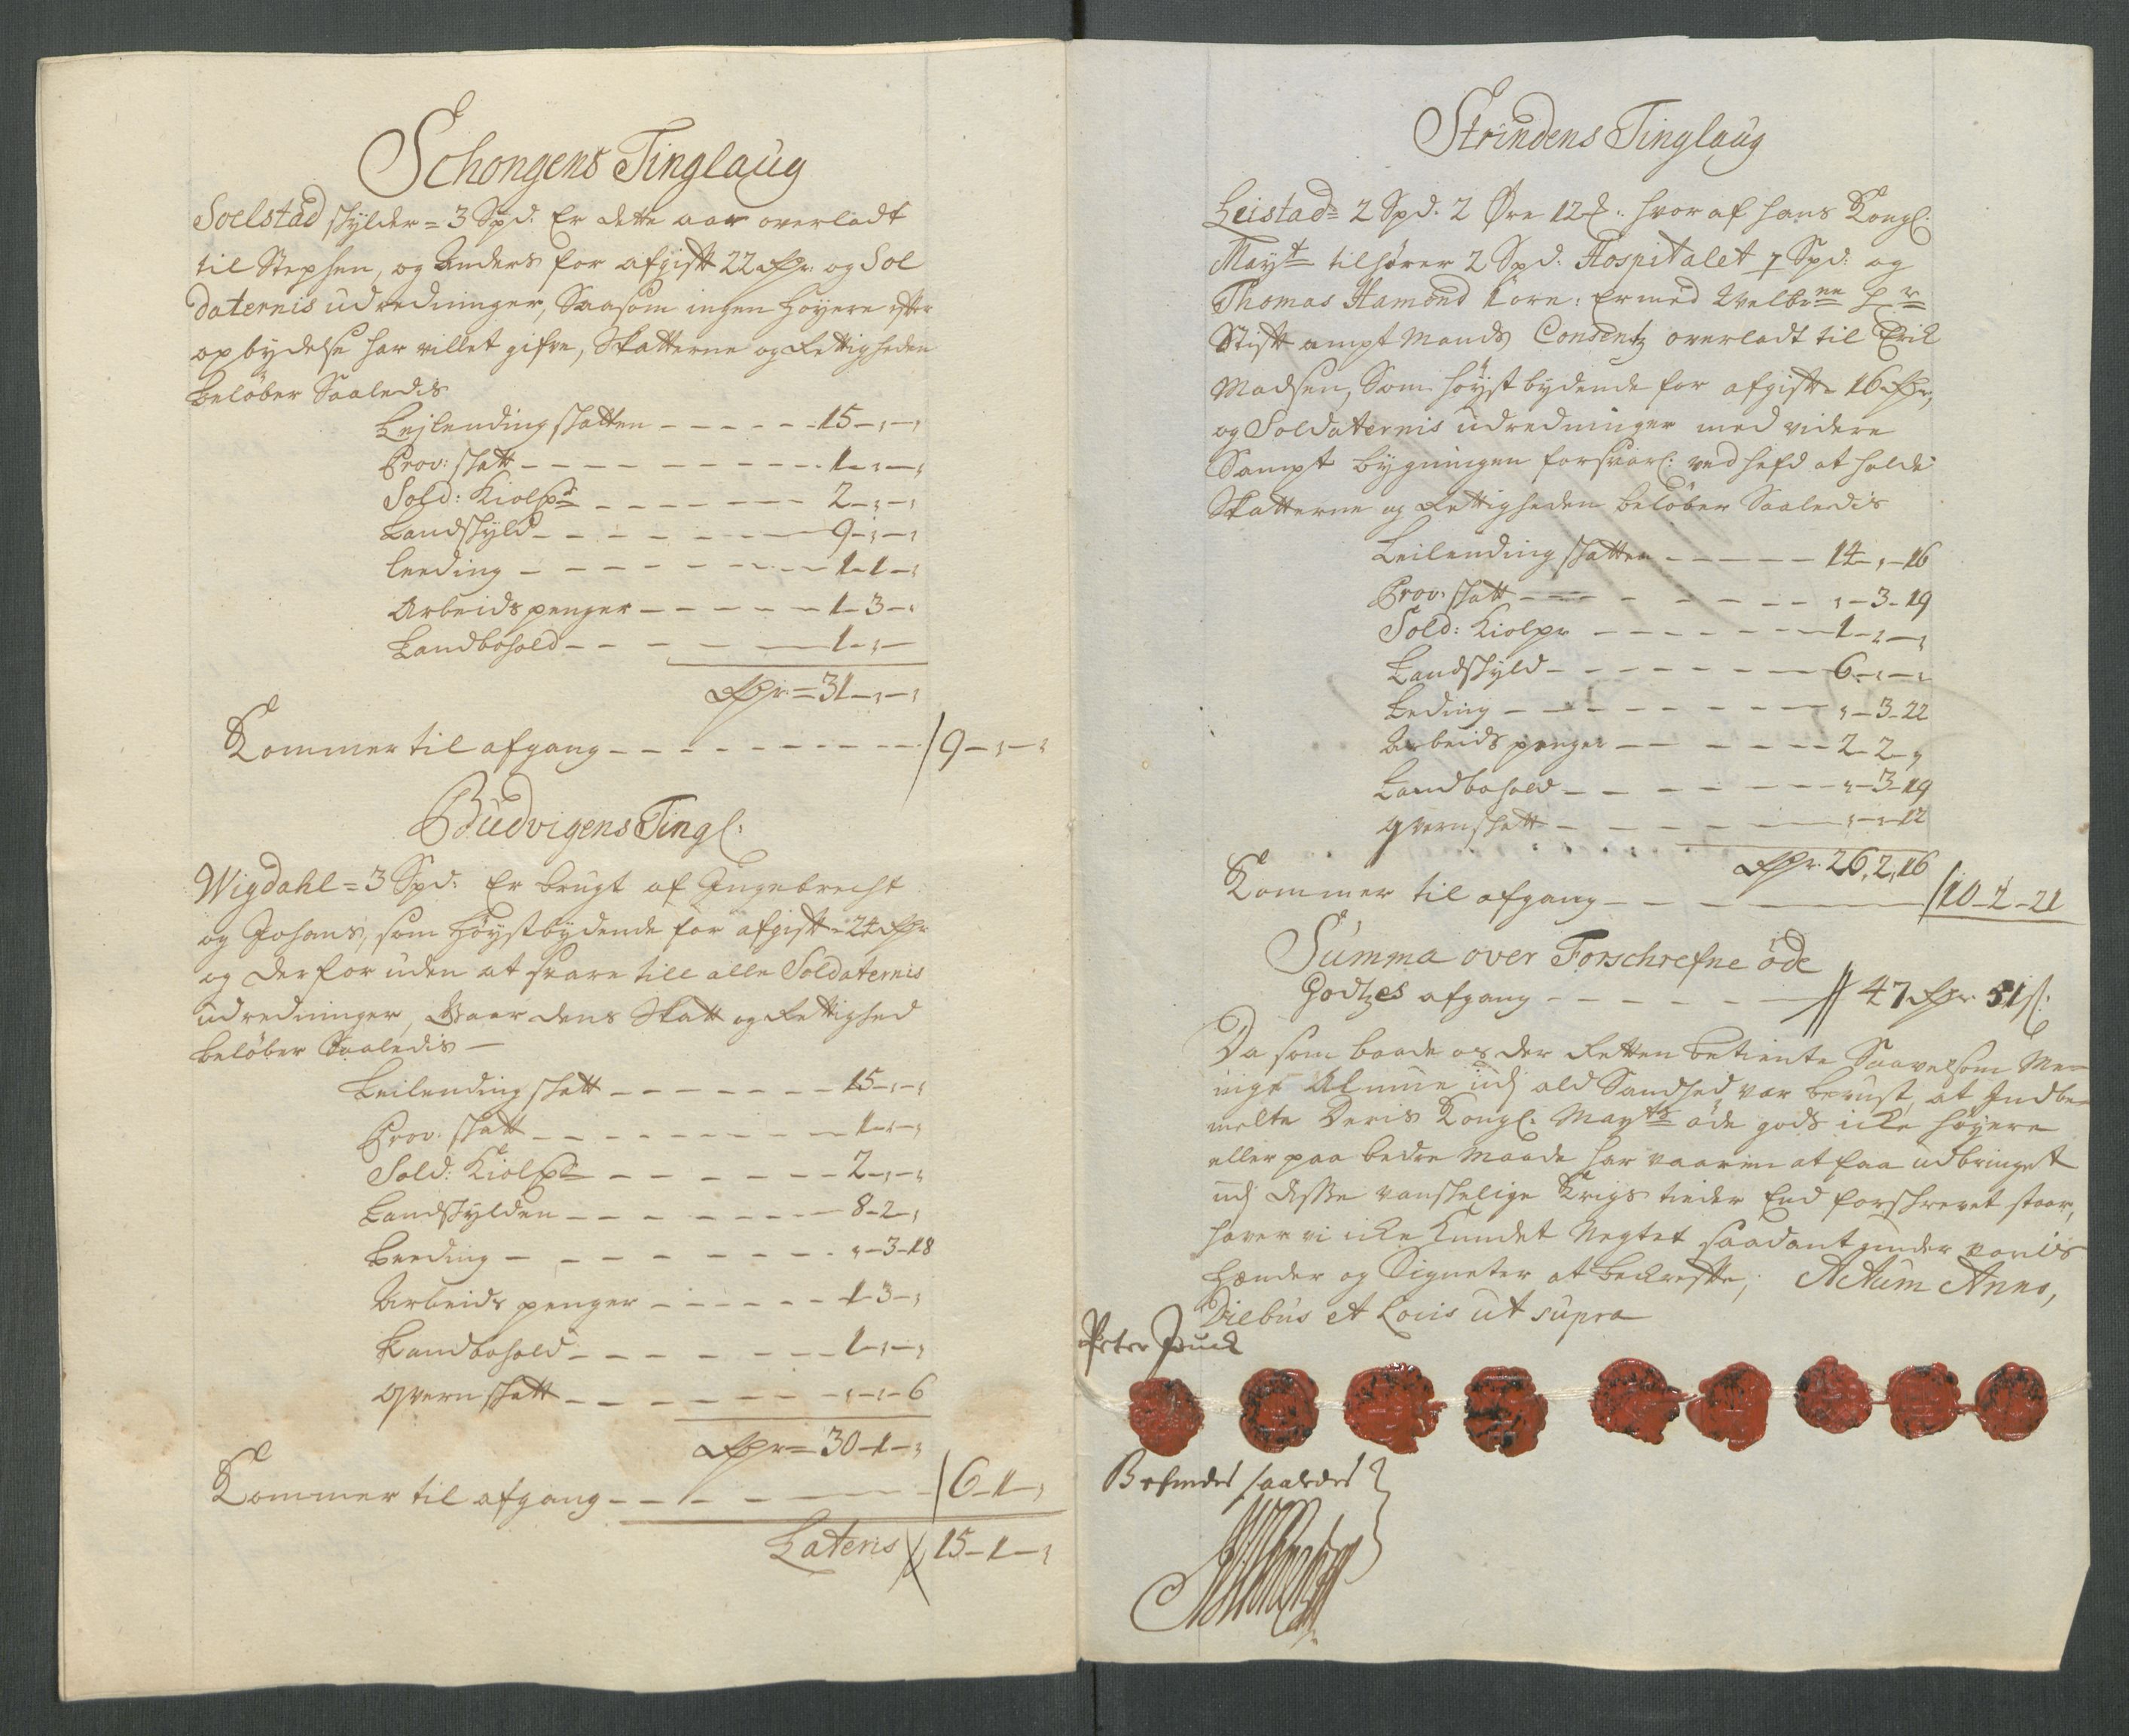 Schongens Tinglaug
Soelstad skylder = 3 Spd: Er dette aar overladt
til Stephen, og Anders for afgift 22 rdr: og Sol
daternis udredninger, Saasom ingen høyere efter
opbydelse har villet gifve, Skatterne og Rettigheden
beløber Saaledis
Leilending skatten - - - - - - 15 - , - ,
Prov: skatt - - - - - - - - 1 - , - ,
Sold: Kiolpr - - - - - - 2 - , - ,
Landskyld - - - - - - - 9 - , - ,
leeding - - - - - - - - 1 - 1 - ,
Arbeidspenger - - - - - 1 - 3 - ,
Landbohold - - - - - 1 - , -
rdr = 31 - , - ,
Kommer til afgang - - - - - - - - - / 9 - , - ,
Budvigens Tingl:
Wigdahl = 3 Spd: Er brugt af Ingebrecht
og Johans, som høystbydende for afgift - 24 rdr
og der for uden at svare till alle Soldaternis
udredninger, Waar dens Skatt og Rettighed
beløber Saaledis -
Leilending skatt - - - - - - 15 - , - ,
Prov. skatt - - - - - - - - 1 - , - ,
Sold: Kiolpr - - - - - - 2 - , - ,
Landskylden - - - - - - - 8 - 2 - ,
Leeding - - - - - - - - , - 3 - 18
Arbeids penger - - - - - - 1 - 3 - ,
Landbohold - - - - - - - 1 - , - ,
Qvern skatt - - - - - - - , - , - 6
rdr = 30 - 1 - ,
Kommer til afgang - - - - - - / 6 - 1 - ,
Lateris // 15 - 1 - ,
Strindens Tinglaug
Leistad = 2 Spd. 2 Øre 12 : hvor af hans Kongl:
Mayt tilhører 2 Spd: Hospitalet 7 Spd: og
Thomas Hamond Korn: Er med Velbrne Hr
Stift ampt Mands Consentz overladt til Eric
Madsen, Som høyst bydende for afgift - 16 rdr,
og Soldaternis udredninger med videre
Sampt bygningen forsvarl: ved hefd at holde
Skatterne og Rettigheden beløber Saaledis
Leilending skatten - - - - - 14 - , - 16
Prov: skatt - - - - - - - , - 3 - 19
Sold: Kiolpr - - - - - - 1 - , - ,
Landskyld - - - - - - - 6 - , - ,
Leding - - - - - - - - , - 3 - 22
Arbeids penger - - - - - 2 - 2 - ,
Landbohold - - - - - - - , - 3 - 19
qvernskatt - - - - - - , - , - 12
rdr 26, 2, 16
Kommer til afgang - - - - - / 10 - 2 - 21
Summa over Forschrefne øde
Godtzes afgang - - - - - - // 47 rdr 51 s:
Da som baade os der Retten betiente Saavelsom Me-
nige Almue udj ald Sandhed var bevust, at Indbe-
melte Deris Kongl: Mayts øde gods icke høyere
eller paa bedre Maade har vaaren at faa udbringet
udj disse vanskelige Krigs tieder End forskrevet staar,
haver vi icke Kundet Negtet saadant under voris
Hænder og Signeter at bekrefte, Actum Anno,
Diebus et Locis ut supra
Peter Juul
Befindes saaledes